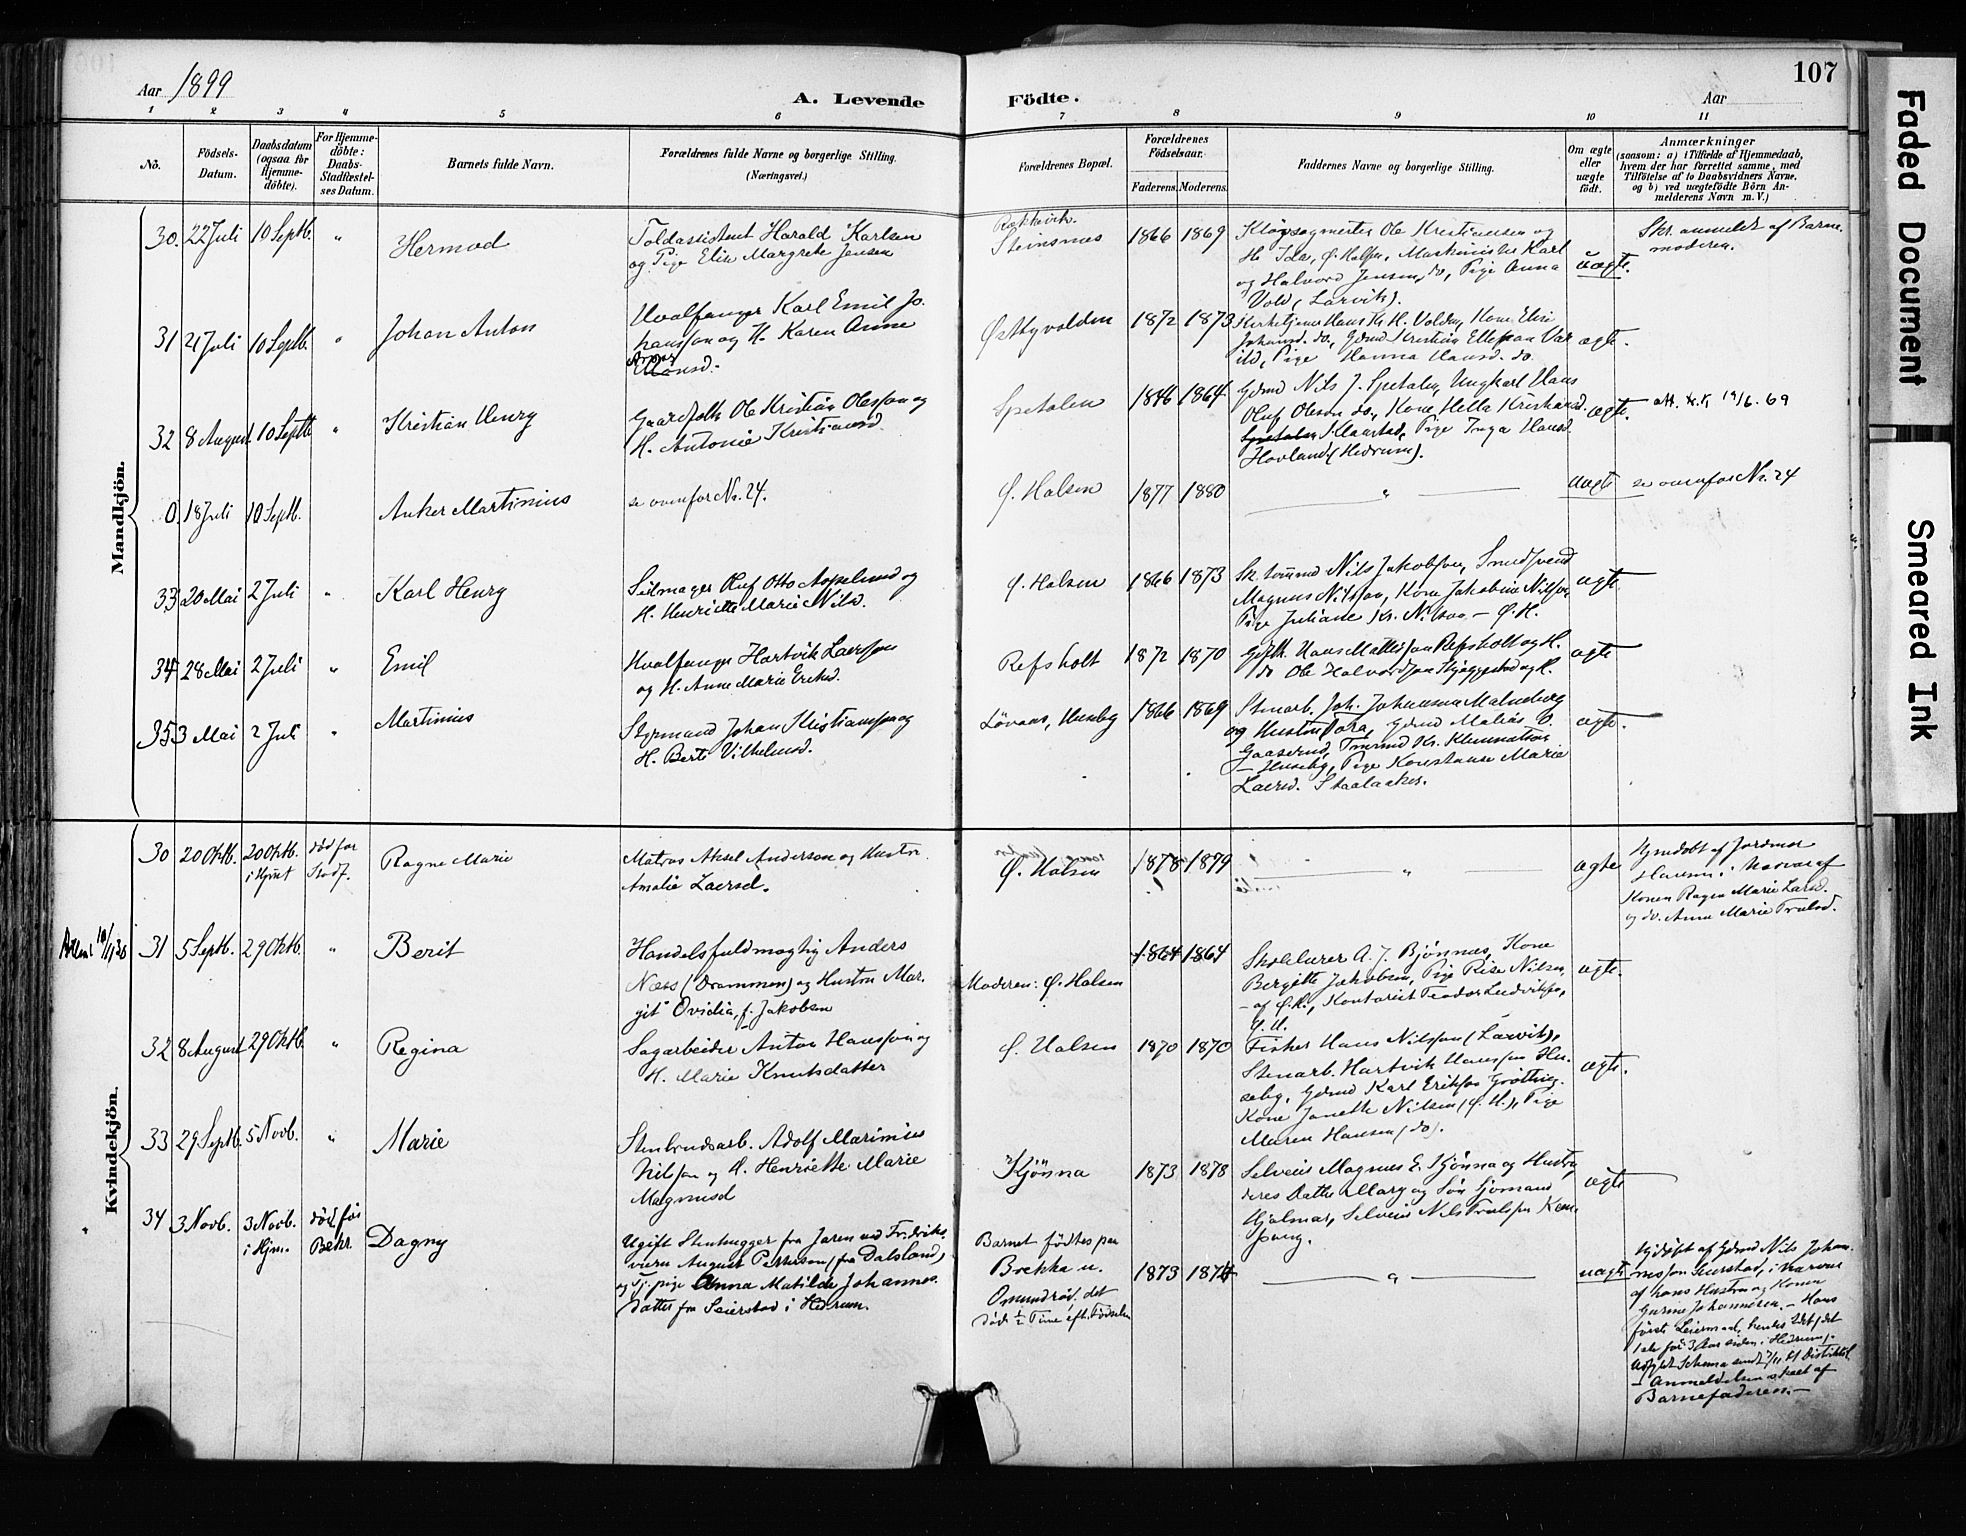 107
Aar 1899
A. Levende Födte.
Aar
1 2 3 4 5 6 7 8 9 10 11
No.
Födsels-Datum.
Daabsdatum (ogsaa for Hjemme-döbte).
For Hjemme-döbte: Daabs-Stadfæstel-ses Datum.
Barnets fulde Navn.
Forældrenes fulde Navne og borgerlige Stilling.
(Næringsvei.)
Forældrenes Bopæl.
Forældrenes Födselsaar.
Faderens. Moderens.
Faddernes Navne og borgerlige Stilling.
Om ægte eller uægte födt.
Anmærkninger
(saasom: a) i Tilfælde af Hjemmedaab,
hvem der har forrettet samme, med
Tilföielse af to Daabsvidners Navne,
og b) ved uægtefödte Börn An-
melderens Navn m. V.)
Mandkjön.
30. 22 Juli 10 Septb. " Hermod
Toldassistent Harald Karlsen
og Pige Elise Margrethe Jensen
Steinsnes 1866 1869
Ole Kristiansen og
H. Ida, Ø. Halsen, Maskinister Karl
og Halvord Jensen, do, Pige Anna
Vold, (Larvik).
uægte.
Skr. anmeldt af Barne-
moderen.
31 21 Juli 10 Septb. " Johan Anton
Hvalfanger Karl Emil Jo-
hansson og H. Karen Anne
1872 1873
Kirketjener Hans Kr. H. Volden, Kone Elise
Johansd. do, Gdmd Kristian Ellefsen Var
ild, Pige Hanna Hansd. do.
ægte.
32 8 August 10 Septb. " Kristian Henry
Gaardfolk Ole Kristian Olesson og
H. Antonie Kristiansd.
Spetalen 1846 1864
Gdmd Nils J. Spetalen, Ungkarl Hans
Oluf Oleson do, Kone Hella Kristiansd.
Klaastad, Pige Inga Hansd.
Hovland (Hedrum).
ægte.
att. 19/6. 69
0. 18 Juli 10 Septb. Anker Martinius
se ovenfor Nr. 24.
Ø. Halsen 1877 1880 " uægte se ovenfor Nr. 24
33 20 Mai 2 Juli " Karl Henry
Seilmager Oluf Otto Aspelund og
H. Henriette Marie Nilsd.
Ø. Halsen 1866 1873
Sk. tømmd Nils Jakobsen, Smedsvend
Magnus Nilsson, Kone Jakobine Nilsson,
Pige Juliane Kr. Nilsson — Ø. H.
ægte
34 28 Mai 2 Juli " Emil
Hvalfanger Hartvik Laersson
og H. Anne Marie Eriksd.
Refsholt 1872 1870
Gdfk. Hans Mattisson Refsholt og H.
do Ole Halvordsson og H.
ægte
35 3 Mai 2 Juli " Martinius
Styrmand Johan Kristiansson og
H. Berte Vilhelmsd.
Løvaas, Huseby 1866 1869
Stenarb. Joh. Johansson Malmberg
og Hustru Tora, Gdmd Matias O.
Gaaserud, Tmrmd Kr. Klemmetson
— Huseby, Pige Konstanse Marie
Laersd. Staalaaker.
ægte.
Kvindekjön.
30 20 Oktb. 20 Oktb. i Hjmt død før Stadf. Ragne Marie
Matros Aksel Anderson og Hustru
Amalie Laersd.
Ø. Halsen 1878 1879 " ægte
Hjmdøbt af Jordmor
Hansen i Nærvær af
Konen Ragna Marie Larsd.
og do. Anne Marie Trulsd.
31 5 Septb. 29 Oktb. " Berit
Handelsfuldmægtig Anders
Næss (Drammen) og Hustru Mar-
git Ovidia, f. Jakobsen
Moderen: Ø. Halsen 1864 1864
Skolelærer A. J. Bjønnes, Kone
Bergitte Jakobsen, Pige Risa Nilsen
— af Ø. H., Kontorist Teodor Ludvikson,
Ø. H.
ægte.
32 8 August 29 Oktb. " Regina
Sagarbeider Anton Hansson og
H. Marie Knutsdatter
Ø. Halsen 1870 1870
Fisker Hans Nilsson (Larvik),
Stenarb. Hartvik Hansson Hu-
seby, Gdmd Karl Erikson Grøtting,
Kone Janette Nilsen (Ø. H.), Pige
Maren Hansen (do).
ægte.
33 29 Septb. 5 Novb. " Marie
Stenbrudsarb. Adolf Marinius
Nilsson og H. Henriette Marie
Magnusd
Kjønna 1873 1878
Selveier Magnus E. Kjønna og Hustru,
deres Datter Mary og Søn Sjømand
Hjalmar, Selveier Nils Trulsson Kam-
ægte
34 3 Novb. 3 Novb. i Hjm. død før Bekr. Dagny
Ugift Stenhugger fra Jaren ved Fredriks-
værn August Petterson (fra Dalsland)
og Tj. pige Anna Matilde Johannes-
datter fra Seierstad i Hedrum.
Barnet fødtes paa
Brekke u.
Omundrød. det
døde ½ Time eft. Fødselen
1873 1874 " uægte
Hjdøpt af Gdmd Nils Johan-
nesson Seierstad, i Nærvær
af hans Hustru og Konen
Gurine Johannesen. — Hans
første Leiermaal, hendes 2det (det
1ste for 3 Aar siden i Hedrum).
— Anmeldelsen skeet af
Barnefaderen. —
Faded Document
Smeared Ink